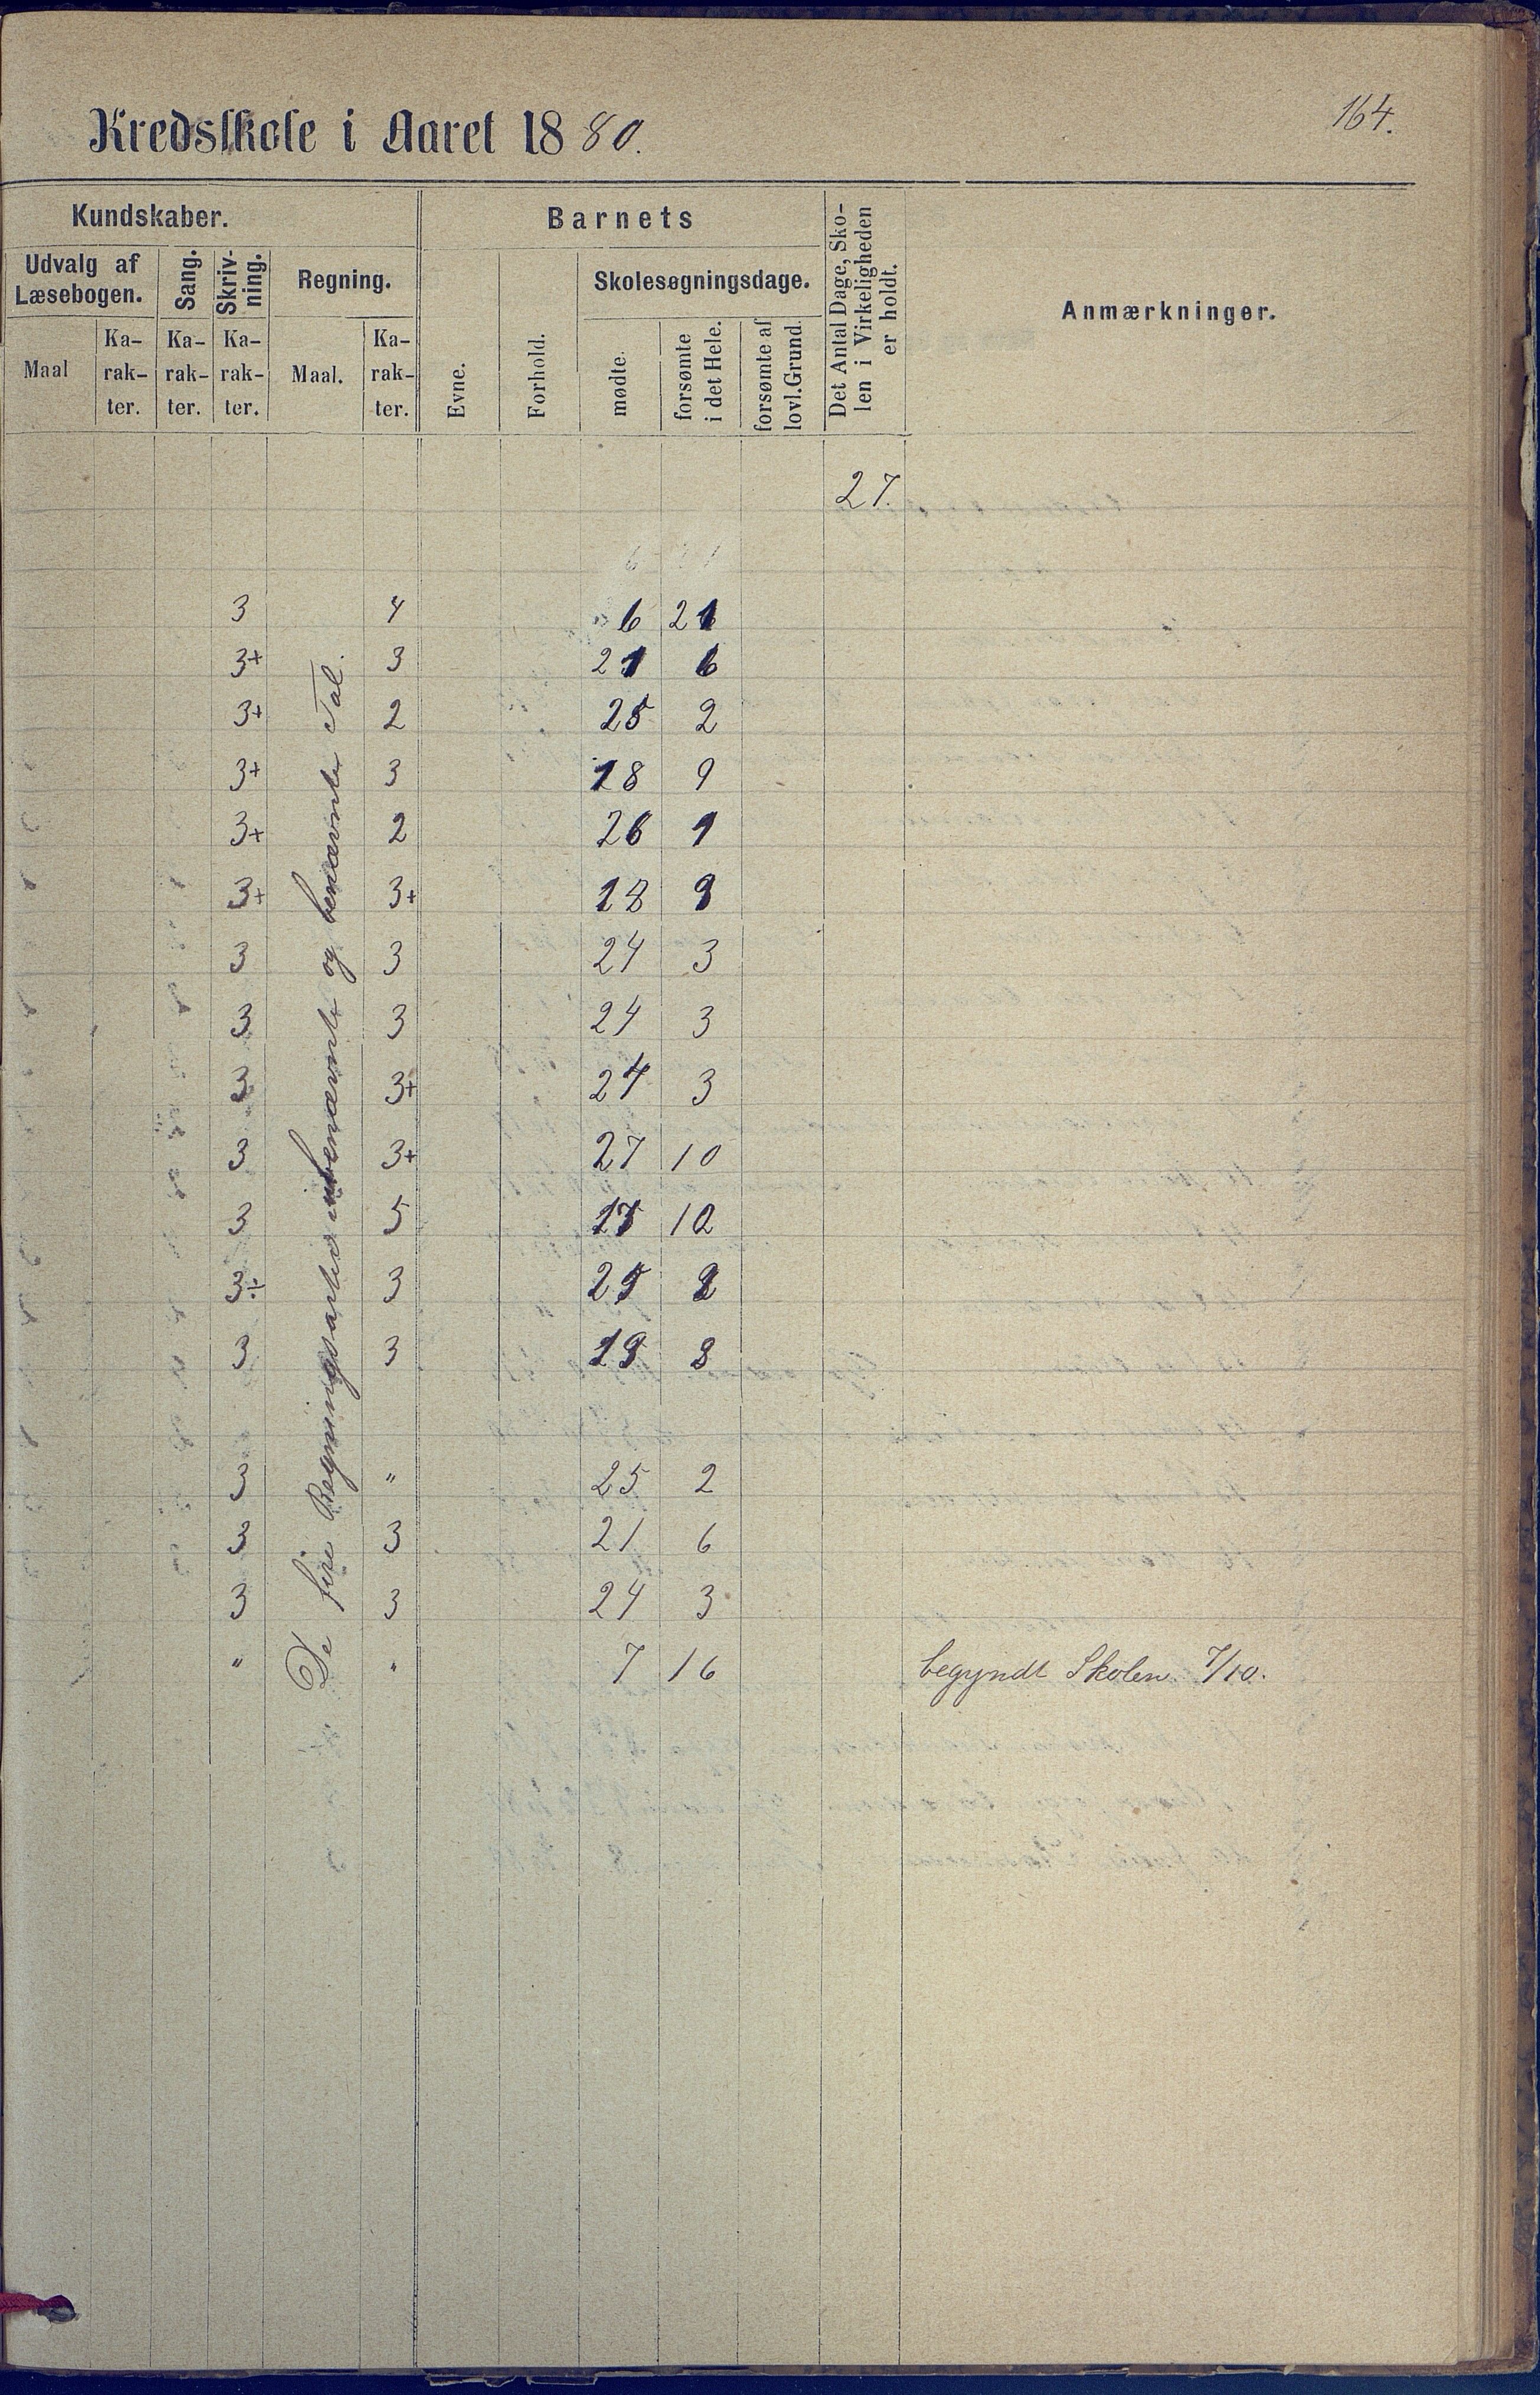 164.
Kredsskole i Aaret 1880.
Kundskaber.
Barnets
Det Antal Dage, Sko-
len i Virkeligheden
er holdt.
Anmærkninger.
Udvalg af
Læsebogen.
Sang.
Skriv-
ning.
Regning.
Evne.
Forhold.
Skolesøgningsdage.
Maal
Ka-
rak-
ter.
Ka-
rak-
ter.
Ka-
rak-
ter.
Maal.
Ka-
rak-
ter.
mødte.
forsømte
i det Hele.
forsømte af
lovl. Grund.
27.
6 21
De fire Regningsarter i ubenævnte og benævnte Tal.
3 4 6 21
3+ 3 21 6
3+ 2 25 2
3+ 3 18 9
3+ 2 26 1
3+ 3+ 18 9
3 3 24 3
3 3 24 3
3 3+ 24 3
3 3+ 27 10
3 5 17 10
3÷ 3 25 2
3 3 19 8
3 " 25 2
3 3 21 6
3 3 24 3
" " 7 16 begyndt Skolen 7/10.